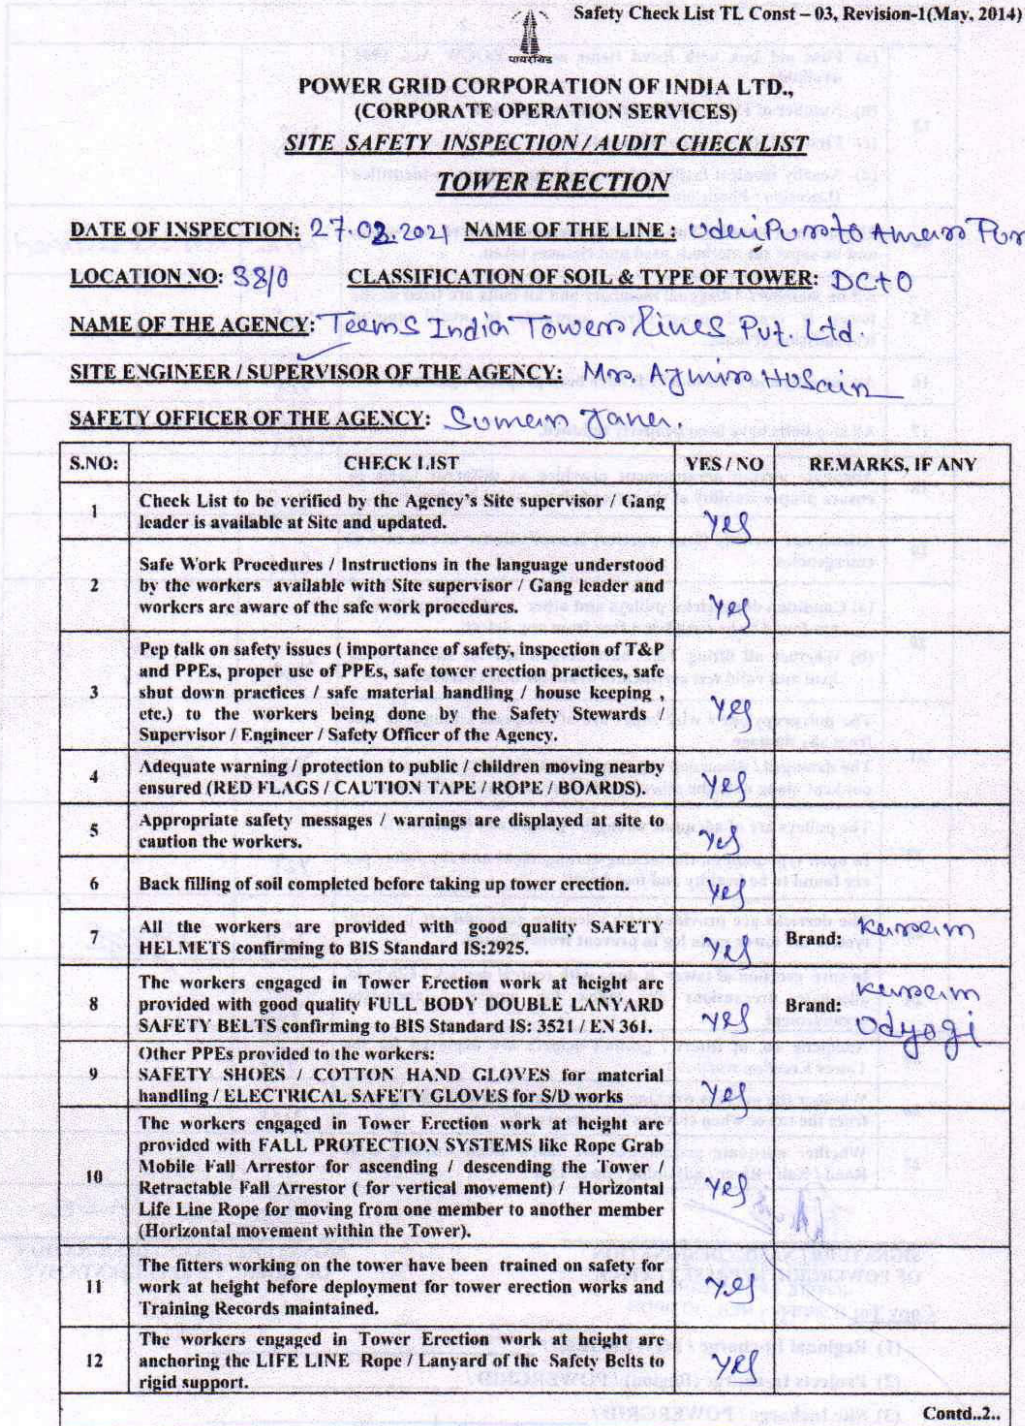 Safety Check List TL Const – 03, Revision-1(May, 2014)
पावरग्रिड
POWER GRID CORPORATION OF INDIA LTD.,
(CORPORATE OPERATION SERVICES)
SITE SAFETY INSPECTION / AUDIT CHECK LIST
TOWER ERECTION
DATE OF INSPECTION: 27.02.2021 NAME OF THE LINE :
LOCATION NO: 38/0 CLASSIFICATION OF SOIL & TYPE OF TOWER: DC+0
NAME OF THE AGENCY: Teems India Towers Lines Pvt. Ltd.
SITE ENGINEER / SUPERVISOR OF THE AGENCY: Hosain
SAFETY OFFICER OF THE AGENCY: Suman Jana.
S.NO: CHECK LIST YES / NO REMARKS, IF ANY
1 Check List to be verified by the Agency's Site supervisor / Gang
leader is available at Site and updated. Yes
2 Safe Work Procedures / Instructions in the language understood
by the workers available with Site supervisor / Gang leader and
workers are aware of the safe work procedures. Yes
3 Pep talk on safety issues ( importance of safety, inspection of T&P
and PPEs, proper use of PPEs, safe tower erection practices, safe
shut down practices / safe material handling / house keeping ,
etc.) to the workers being done by the Safety Stewards /
Supervisor / Engineer / Safety Officer of the Agency. Yes
4 Adequate warning / protection to public / children moving nearby
ensured (RED FLAGS / CAUTION TAPE / ROPE / BOARDS). Yes
5 Appropriate safety messages / warnings are displayed at site to
caution the workers. Yes
6 Back filling of soil completed before taking up tower erection. Yes
7 All the workers are provided with good quality SAFETY
HELMETS confirming to BIS Standard IS:2925. Yes Brand: Karam
8 The workers engaged in Tower Erection work at height are
provided with good quality FULL BODY DOUBLE LANYARD
SAFETY BELTS confirming to BIS Standard IS: 3521 / EN 361. Yes Brand: Karam
Udyogi
9 Other PPEs provided to the workers:
SAFETY SHOES / COTTON HAND GLOVES for material
handling / ELECTRICAL SAFETY GLOVES for S/D works Yes
10 The workers engaged in Tower Erection work at height are
provided with FALL PROTECTION SYSTEMS like Rope Grab
Mobile Fall Arrestor for ascending / descending the Tower /
Retractable Fall Arrestor ( for vertical movement) / Horizontal
Life Line Rope for moving from one member to another member
(Horizontal movement within the Tower). Yes
11 The fitters working on the tower have been trained on safety for
work at height before deployment for tower erection works and
Training Records maintained. Yes
12 The workers engaged in Tower Erection work at height are
anchoring the LIFE LINE Rope / Lanyard of the Safety Belts to
rigid support. Yes
Contd..2..